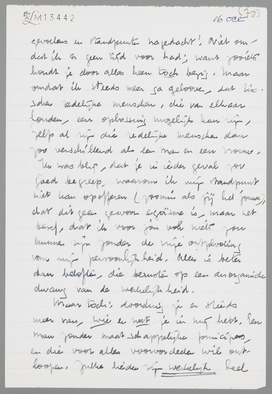 M13442
16 OCT
gevoelens en standpunten nagedacht! Niet om-
dat ik er geen tijd voor had; want zoiets
houdt je door alles heen toch bezig. Maar
omdat ik steeds meer ga geloven, dat tus-
schen redelijke menschen, die van elkaar
houden, een oplossing mogelijk kan zijn,
zelfs al zijn die redelijke menschen dan
zoo verschillend als een man en een vrouw.
Ik was blij, dat je in ieder geval zoo
goed begreep, waarom ik mijn standpunt
niet kan opofferen (zoomin als jij het jouwe),
dat dit geen gewoon egoïsme is, maar het
besef, dat ik voor jou ook niets zou
kunnen zijn zonder de
van mijn persoonlijkheid. Alles is beter
dan beloften, die berusten op een
dwang van de werkelijkheid.
Maar toch: doordring je er steeds
meer van, wie en wat je in mij hebt. Een
man zonder maatschappelijke
en die voor alles vooroordeelen wil ont-
loopen. Zulke lieden zijn werkelijk heel